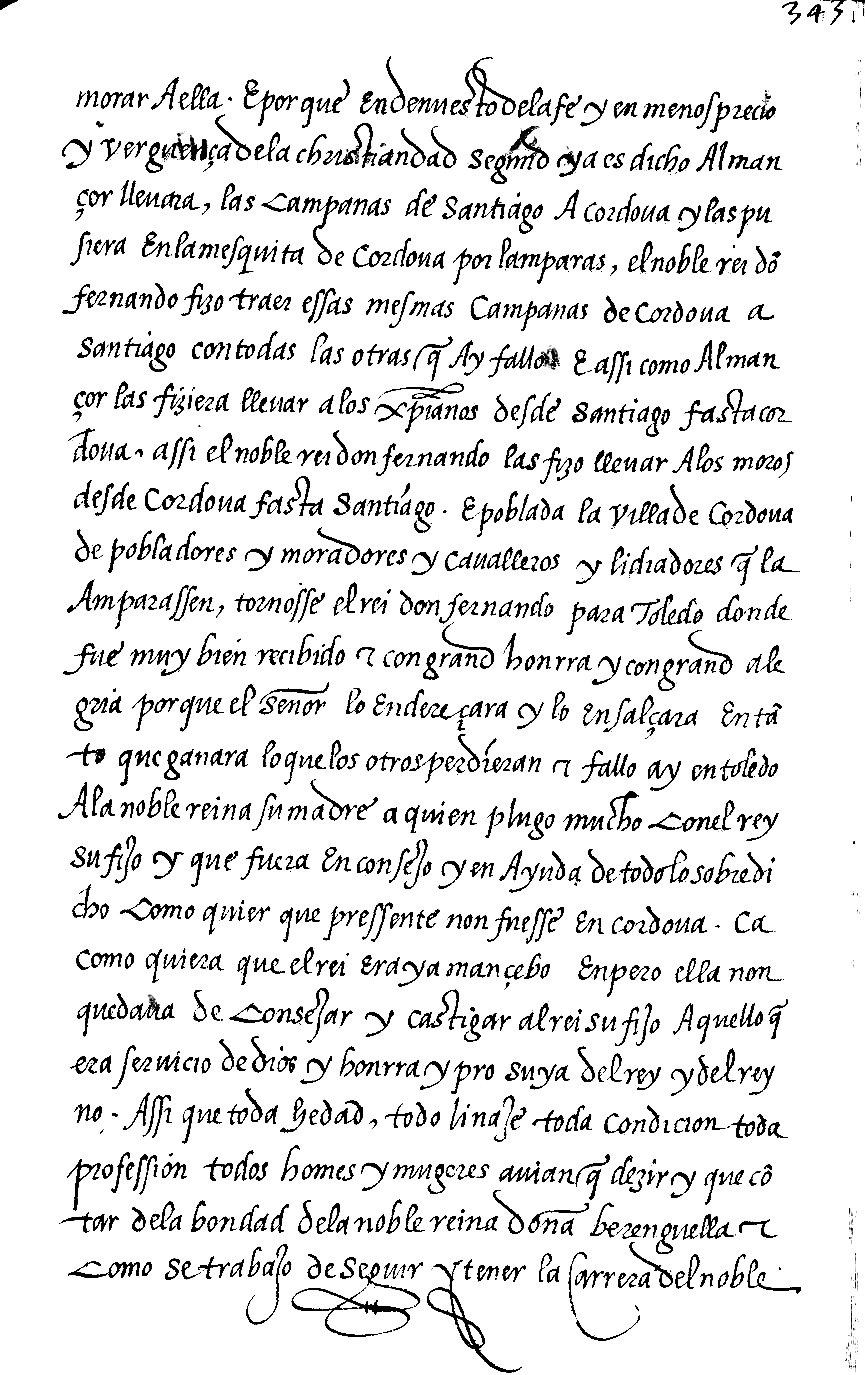 343
morar Aella. E porque En denuesto dela fe y en menospreçio
y verguença dela christiandad segund ya es dicho Alman
çor lleuara, las Campanas de Santiago A cordoua y las pu
siera En la mesquita de Cordoua por lamparas, el noble rei dō
fernando fizo traer essas mesmas Campanas de Cordoua a
Santiago con todas las otras q̄ Ay fallo E assi como Alman
çor las fiziera lleuar a los xp̄ianos desde Santiago fasta cor
doua. assi el noble rei don fernando las fizo lleuar Alos moros
desde Cordoua fasta Santiago. E poblada la villa de Cordoua
de pobladores y moradores y caualleros y lidiadores q̄ la
Amparassen, tornosse el rei don fernando para Toledo donde
fue muy bien recibido ⁊ con grand honrra y con grand ale
gria porque el señor lo Endereçara y lo Ensalçara En tā
to que ganara lo que los otros perdieran ⁊ fallo ay en toledo
Ala noble reina su madre a quien plugo mucho Con el rey
su fijo y que fuera En consejo y en Ayuda de todo lo sobredi
cho Como quier que pressente non fuesse En cordoua. Ca
como quiera que el rei Era ya mançebo Enpero ella non
quedaua de Consejar y castigar al rei su fijo Aquello q̄
era seruicio de dios y honrra y pro suya del rey y del rey
no. Assi que toda hedad, todo linaje toda condicion toda
professión todos homes y mugeres auian q̄ dezir y que cō
tar dela bondad dela noble reina doña berenguella ⁊
Como se trabajo de seguir y tener la Carrera del noble